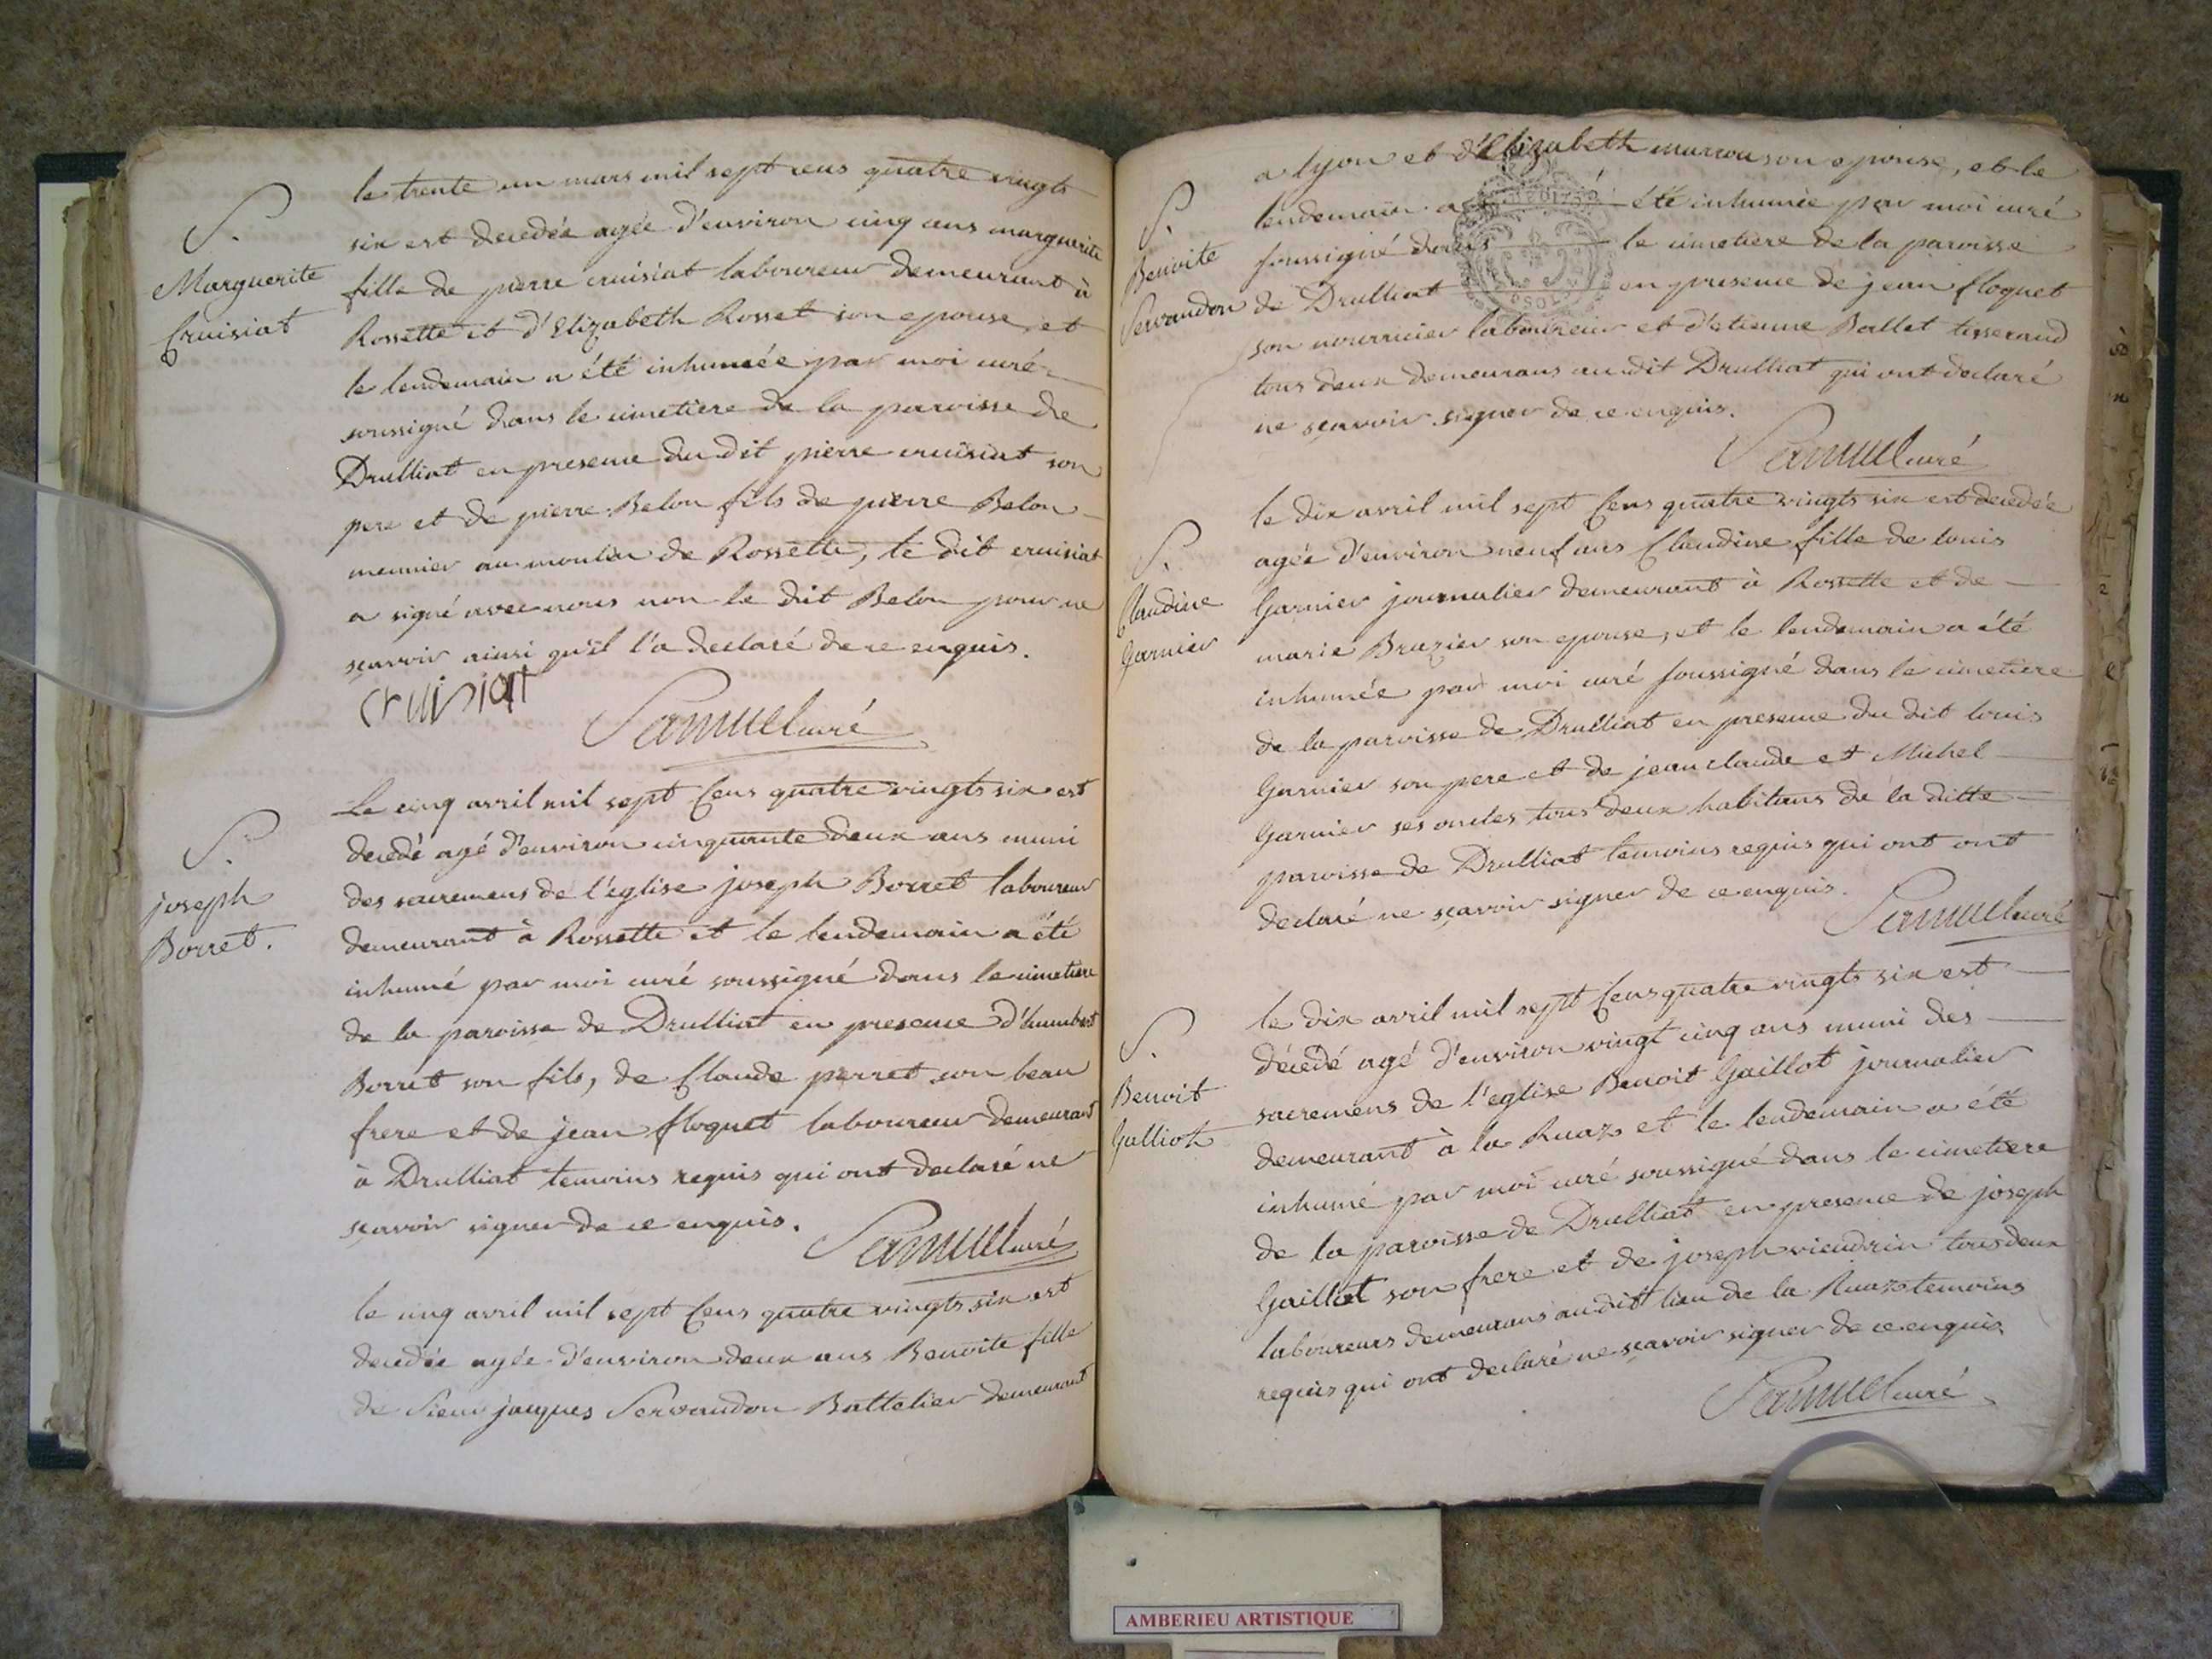 S.
Marguerite
Cruisiat
le trente un mars mil sept cens quatre vingts
six est decedée agée d'environ cinq ans marguerite
fille de pierre cruisiat laboureur demeurant à
Rossette et d'Elizabeth Rosset son epouse, et
le lendemain a été inhumée par moi curé
soussigné dans le cimetiere de la paroisse de
Drulliat en presence du dit pierre cruisiat son
pere et de pierre Belon fils de pierre Belon
meunier au moulin de Rossette, le dit cruisiat
a signé avec nous non le dit Belon pour ne
sçavoir ainsi qu'il l'a declaré de ce enquis.
cruisiat
Samuel curé
S.
joseph
Borret.
Le cinq avril mil sept Cens quatre vingts six est
decedé agé d'environ cinquante deux ans muni
des sacremens de l'eglise joseph Borret laboureur
demeurant à Rossette et le lendemain a été
inhumé par moi curé soussigné dans le cimetiere
de la paroisse de Drulliat en presence d'humbert
Borret son fils, de Claude perret son beau
frere et de jean floquet laboureur demeurant
à Drulliat temoins requis qui ont declaré ne
sçavoir signer de ce enquis.
Samuel curé
le cinq avril mil sept Cens quatre vingts six est
decedée agée d'environ deux ans Benoite fille
de Sieur jacques Servandon Battelier demeurant
S.
Benoite
Servandon
a lyon et d'Elizabeth marrou son epouse, et le
lendemain a été inhumée par moi curé
soussigné dans le cimetiere de la paroisse
de Drulliat en presence de jean floquet
son nourricier laboureur et d'etienne Ballet tisserand
tous deux demeurans au dit Drulliat qui ont declaré
ne sçavoir signer de ce enquis.
Samuel curé
S.
Claudine
Garnier
le dix avril mil sept Cens quatre vingts six est decedée
agée d'environ neuf ans Claudine fille de louis
Garnier journalier demeurant à Rossette et de
marie Brazier son epouse, et le lendemain a été
inhumée par moi curé soussigné dans le cimetiere
de la paroisse de Drulliat en presence du dit louis
Garnier son pere et de jean claude et Michel
Garnier ses oncles tous deux habitans de la ditte
paroisse de Drulliat temoins requis qui ont ont
declaré ne sçavoir signer de ce enquis.
Samuel curé
S.
Benoit
Galliot
le dix avril mil sept Cens quatre vingts six est
décédé agé d'environ vingt cinq ans muni des
sacremens de l'eglise Benoit Gaillot journalier
demeurant à la Ruaz et le lendemain a été
inhumé par moi curé soussigné dans le cimetiere
de la paroisse de Drulliat en presence de joseph
Gaillot son frere et de joseph vieudrin tous deux
laboureurs demeurans au dit lieu de la Ruaz temoins
requis qui ont declaré ne sçavoir signer de ce enquis
Samuel curé
AMBERIEU ARTISTIQUE